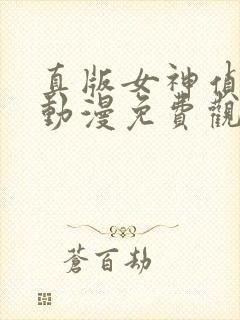 真版女神偵
動漫免費觀
蒼百劫